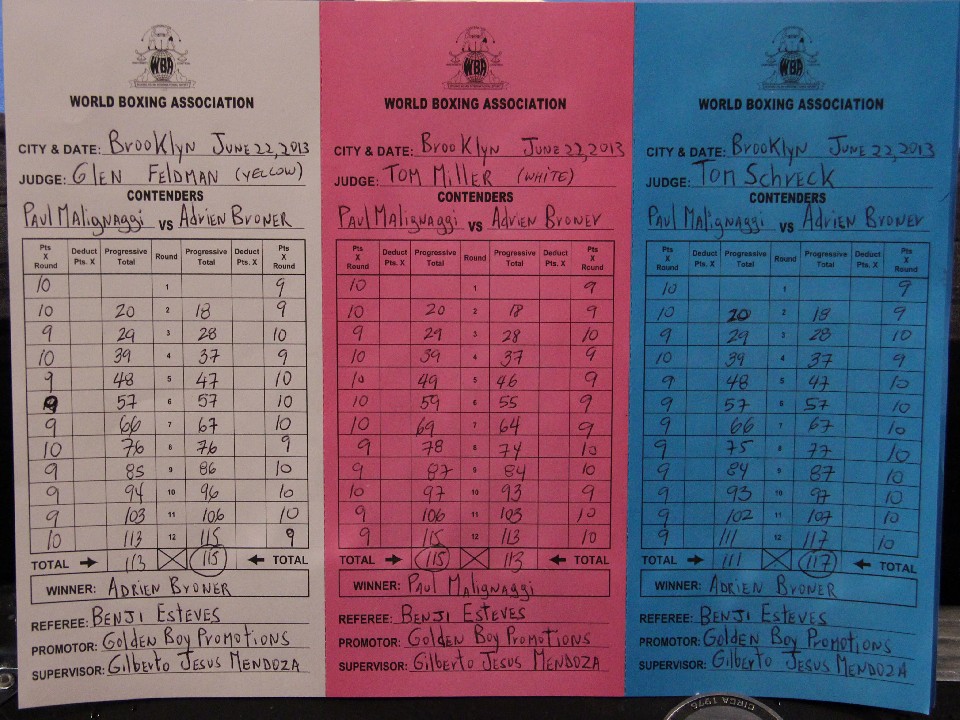 WBA
WORLD BOXING ASSOCIATION
CITY & DATE: Brooklyn June 22, 2013
JUDGE: Glen Feldman (yellow)
CONTENDERS
Paul Malignaggi VS Adrien Broner
Pts X Round Deduct Pts. X Progressive Total Round Progressive Total Deduct Pts. X Pts X Round
10 1 9
10 20 2 18 9
9 29 3 28 10
10 39 4 37 9
9 48 5 47 10
9 57 6 57 10
9 66 7 67 10
10 76 8 76 9
9 85 9 86 10
9 94 10 96 10
9 103 11 106 10
10 113 12 115 9
TOTAL 113 115 TOTAL
WINNER: Adrien Broner
REFEREE: Benji Esteves
PROMOTOR: Golden Boy Promotions
SUPERVISOR: Gilberto Jesus Mendoza
WBA
WORLD BOXING ASSOCIATION
CITY & DATE: Brooklyn June 22, 2013
JUDGE: Tom Miller (white)
CONTENDERS
Paul Malignaggi VS Adrien Broner
Pts X Round Deduct Pts. X Progressive Total Round Progressive Total Deduct Pts. X Pts X Round
10 1 9
10 20 2 18 9
9 29 3 28 10
10 39 4 37 9
10 49 5 46 9
10 59 6 55 9
10 69 7 64 9
9 78 8 74 10
9 87 9 84 10
10 97 10 93 9
9 106 11 103 10
9 115 12 113 10
TOTAL 115 113 TOTAL
WINNER: Paul Malignaggi
REFEREE: Benji Esteves
PROMOTOR: Golden Boy Promotions
SUPERVISOR: Gilberto Jesus Mendoza
WBA
WORLD BOXING ASSOCIATION
CITY & DATE: Brooklyn June 22, 2013
JUDGE: Tom Schreck
CONTENDERS
Paul Malignaggi VS Adrien Broner
Pts X Round Deduct Pts. X Progressive Total Round Progressive Total Deduct Pts. X Pts X Round
10 1 9
10 20 2 18 9
9 29 3 28 10
10 39 4 37 9
9 48 5 47 10
9 57 6 57 10
9 66 7 67 10
9 75 8 77 10
9 84 9 87 10
9 93 10 97 10
9 102 11 107 10
9 111 12 117 10
TOTAL 111 117 TOTAL
WINNER: Adrien Broner
REFEREE: Benji Esteves
PROMOTOR: Golden Boy Promotions
SUPERVISOR: Gilberto Jesus Mendoza